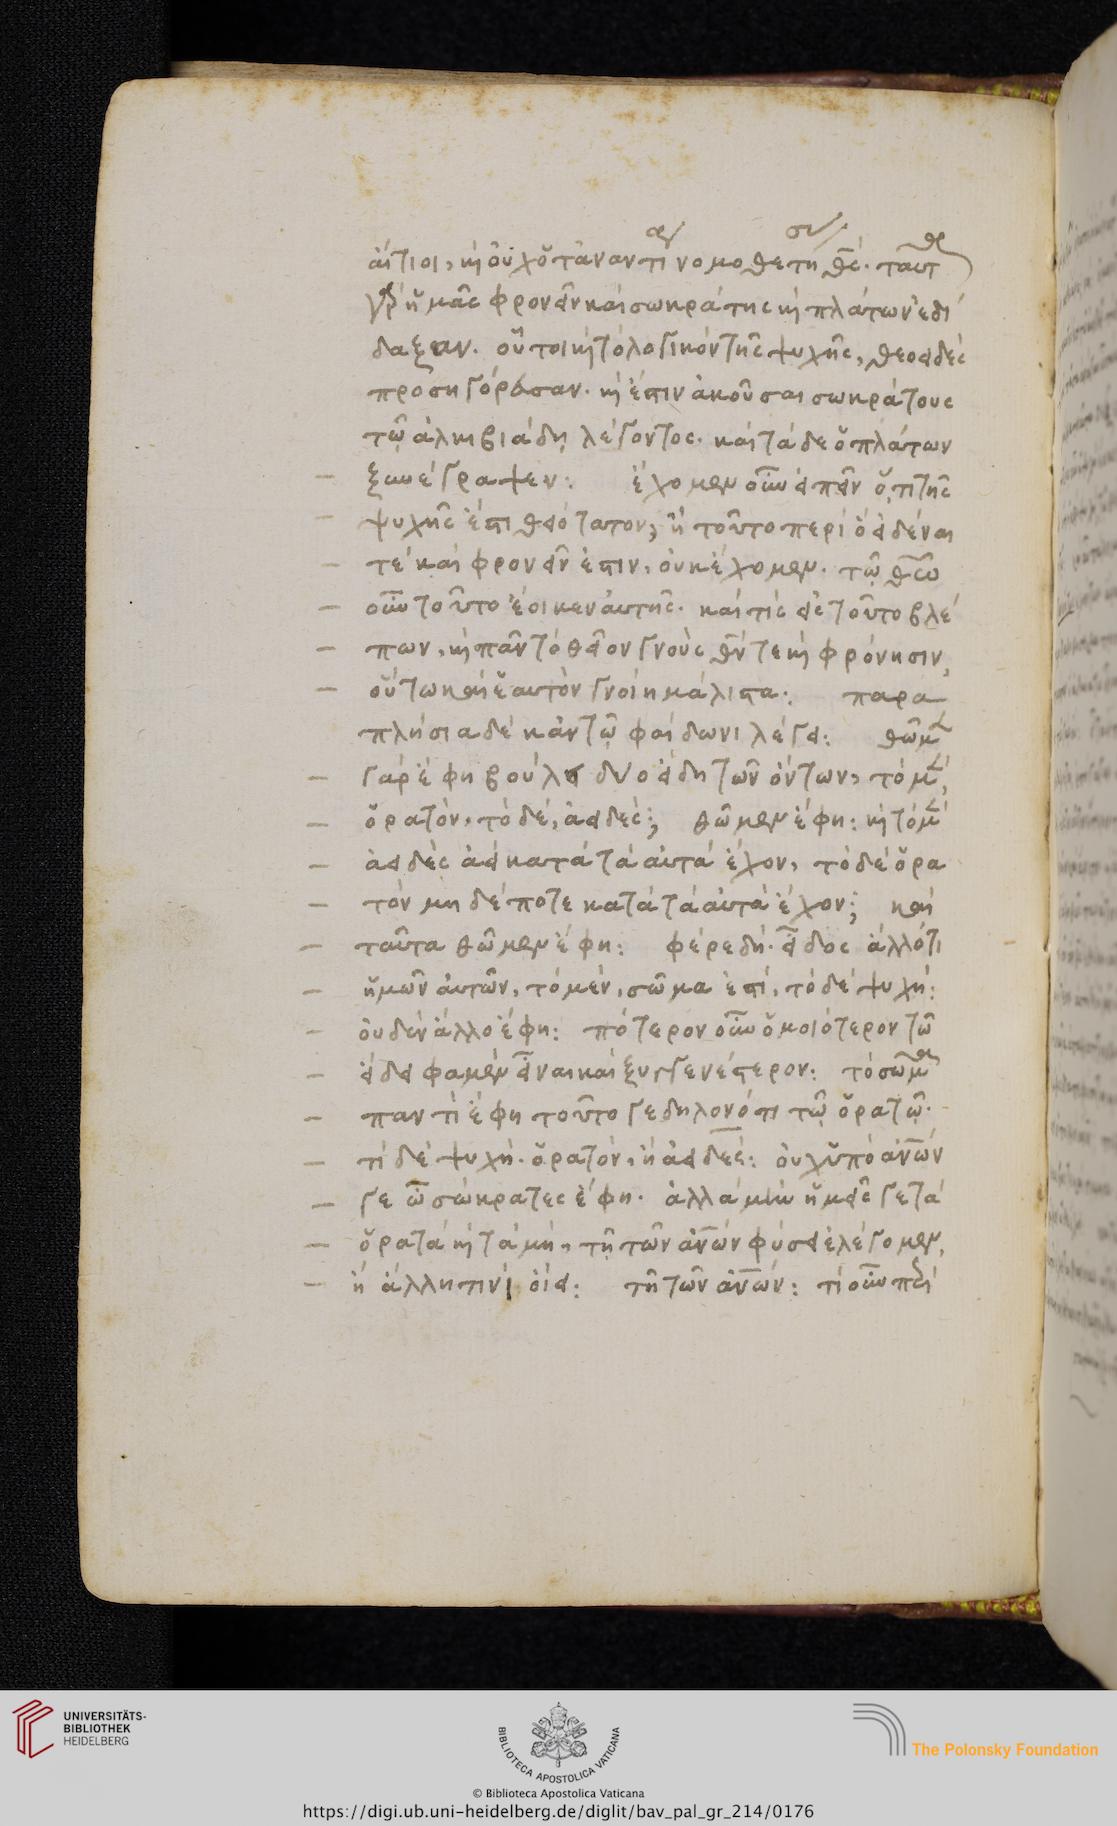 αἴτιοι, καὶ οὐχ ὅταν αντινομοθετηθέ. ταυτ
γὰρ ἡμᾶς φρονεῖν καὶ σωκράτης καὶ πλάτων ἐδί
δαξαν. οὗτοι καὶ τὸ λογικὸν τῆς ψυχῆς, θεοειδὲς
προσηγόρευσαν. καὶ ἔστιν ἀκοῦσαι σωκράτους
τῷ ἀλκιβιάδῃ λέγοντος. καὶ τάδε ὁ πλάτων
ξυνέγραψεν: ἔχομεν οὖν εἰπεῖν ὅ,τι τῆς
ψυχῆς ἔστι θειότατον, ἢ τοῦτο περὶ ὃ εἰδέναι
τέ καὶ φρονεῖν ἐστιν. οὐκ ἔχομεν. τῷ θεῷ
οὖν τοῦτο ἔοικεν αὐτῆς. καί τις εἰς τοῦτο βλέ
πων, καὶ πᾶν τὸ θεῖον γνοὺς θν τε καὶ φρόνησιν,
οὕτω καὶ ἑαυτὸν γνοίη μάλιστα: παρα
πλήσια δὲ κἀν τῷ φαίδωνι λέγει: θῶμεν
γὰρ ἔφη βούλει δύο εἴδη τῶν ὄντων, τὸ μὲν,
ὁρατὸν, τὸ δὲ, ἀειδές; θῶμεν ἔφη: καὶ τὸ μὲν
ἀειδὲς ἀεὶ κατὰ τὰ αὐτὰ ἔχον, τὸ δὲ ὁρα
τὸν μηδέποτε κατὰ τὰ αὐτὰ ἔχον; καὶ
ταῦτα θῶμεν ἔφη: φέρε δή. εἶδος ἄλλό τι
ἡμῶν αὐτῶν, τὸ μὲν, σῶμα ἐστί, τὸ δὲ ψυχή:
οὐδὲν ἄλλο ἔφη: πότερον οὖν ὁμοιότερον τῶ
εἴδει φαμὲν εἶναι καὶ ξυγγενέστερον: τὸ σῶμα
παντὶ ἔφη τοῦτο γε δηλονότι τῷ ὁρατῷ.
τί δὲ ψυχή. ὁρατὸν, ἢ ἀειδές: οὐχ ὑπὸ ἀνων
γε ὦ σώκρατες ἔφη. ἀλλὰ μὴν ἡμεῖς γε τὰ
ὁρατὰ καὶ τὰ μὴ, τῇ τῶν ἀνων φύσει ἐλέγομεν,
ἢ ἄλλη τινὶ οἴει: τῆ τῶν ἀνων: τί οὖν περὶ
UNIVERSITÄTS-
BIBLIOTHEK
HEIDELBERG
BIBLIOTECA APOSTOLICA VATICANA
The Polonsky Foundation
© Biblioteca Apostolica Vaticana
https://digi.ub.uni-heidelberg.de/diglit/bav_pal_gr_214/0176